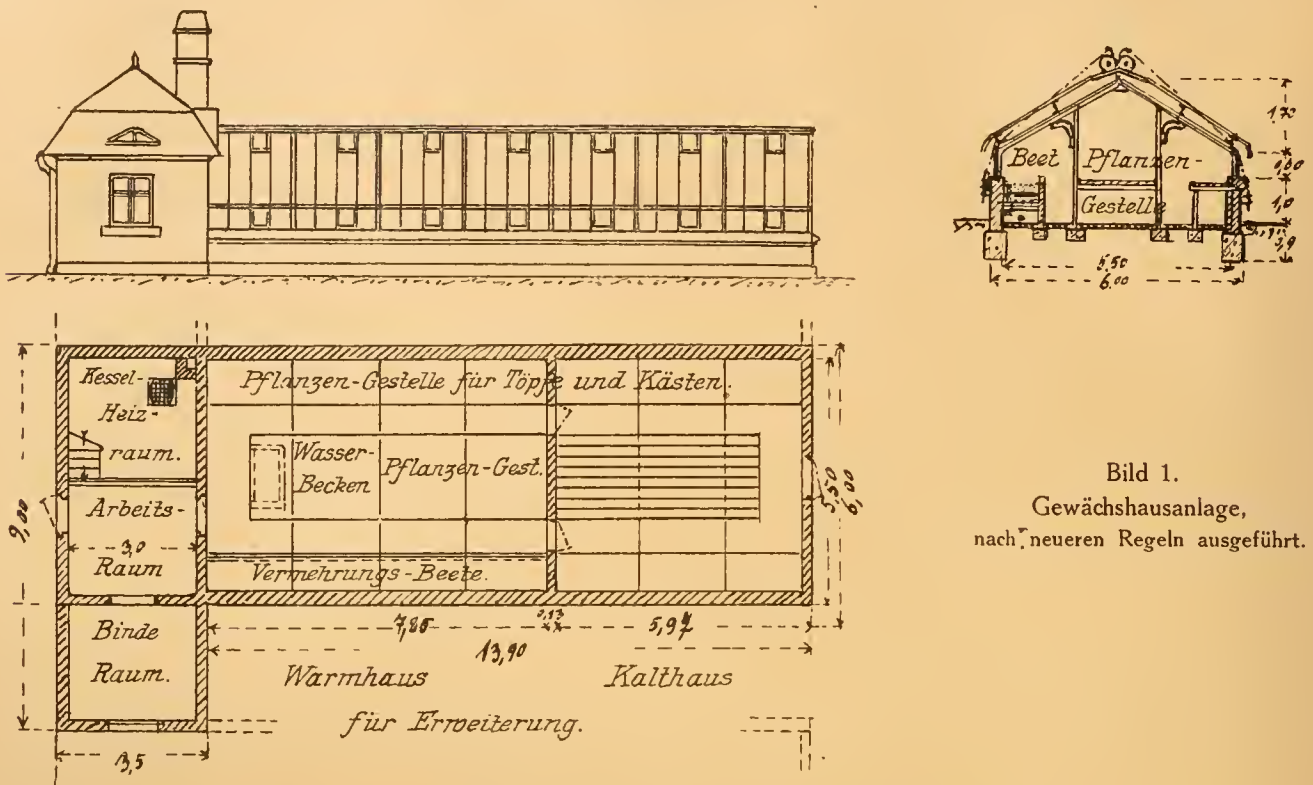 Beet Pflanzen-
Gestelle
1,70
0,80
1,0
5.50
6.00
Kessel-
Heiz-
raum.
Pflanzen-Gestelle für Töpfe und Kästen.
Wasser-
Becken
Pflanzen-Gest.
5,50
6,00
9,00
Arbeits-
3,0
Raum
Vermehrungs-Beete.
Binde
Raum.
7,85
0,13
5,92
13,90
Warmhaus
Kalthaus
für Erweiterung.
3,5
Bild 1.
Gewächshausanlage,
nach neueren Regeln ausgeführt.